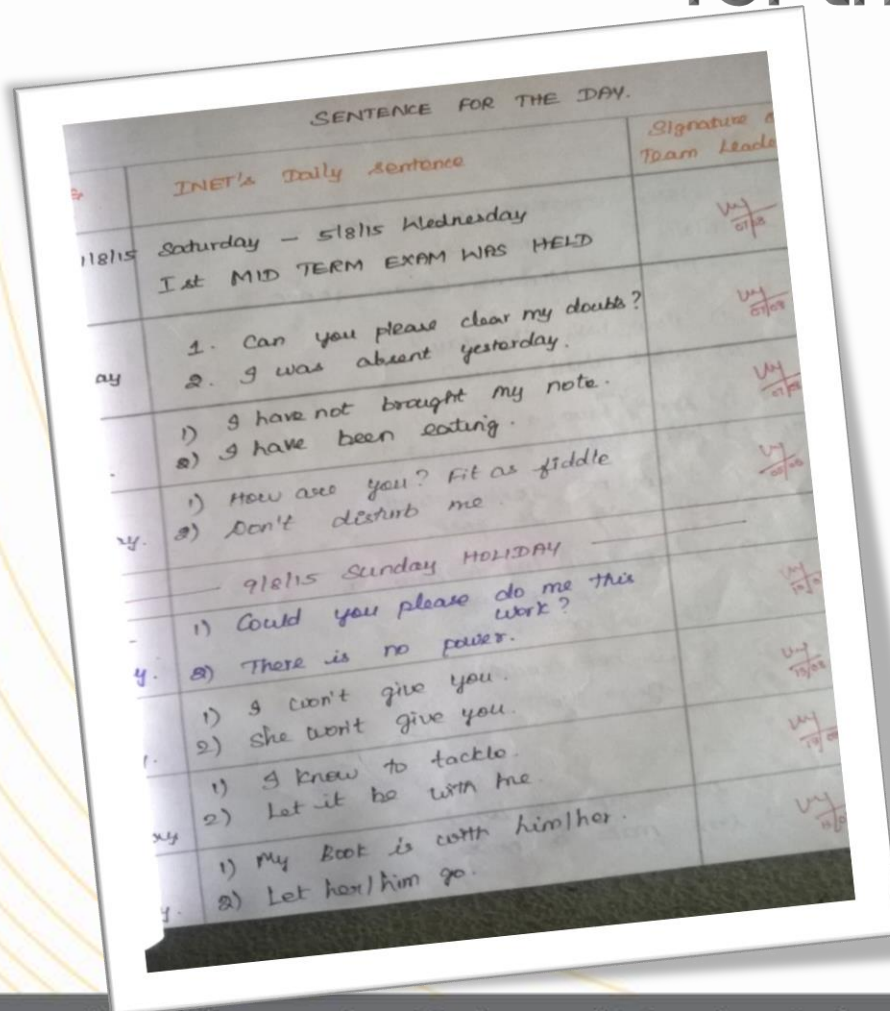 for th
SENTENCE FOR THE DAY.
INET's Daily Sentence
Signature
Team Leade
1/8/15 Saturday – 5/8/15 Wednesday
Ist MID TERM EXAM WAS HELD
07/08
ay
1. Can you please clear my doubts?
2. I was absent yesterday.
07/08
1) I have not brought my note.
2) I have been eating.
07/08
1) How are you? Fit as fiddle
2) Don't disturb me
9/8/15 Sunday HOLIDAY
1) Could you please do me this
work?
y.
2) There is no power.
1) I won't give you.
2) She won't give you.
1) I know to tackle.
2) Let it be with me.
1) My Book is with him/her.
y.
2) Let her/him go.